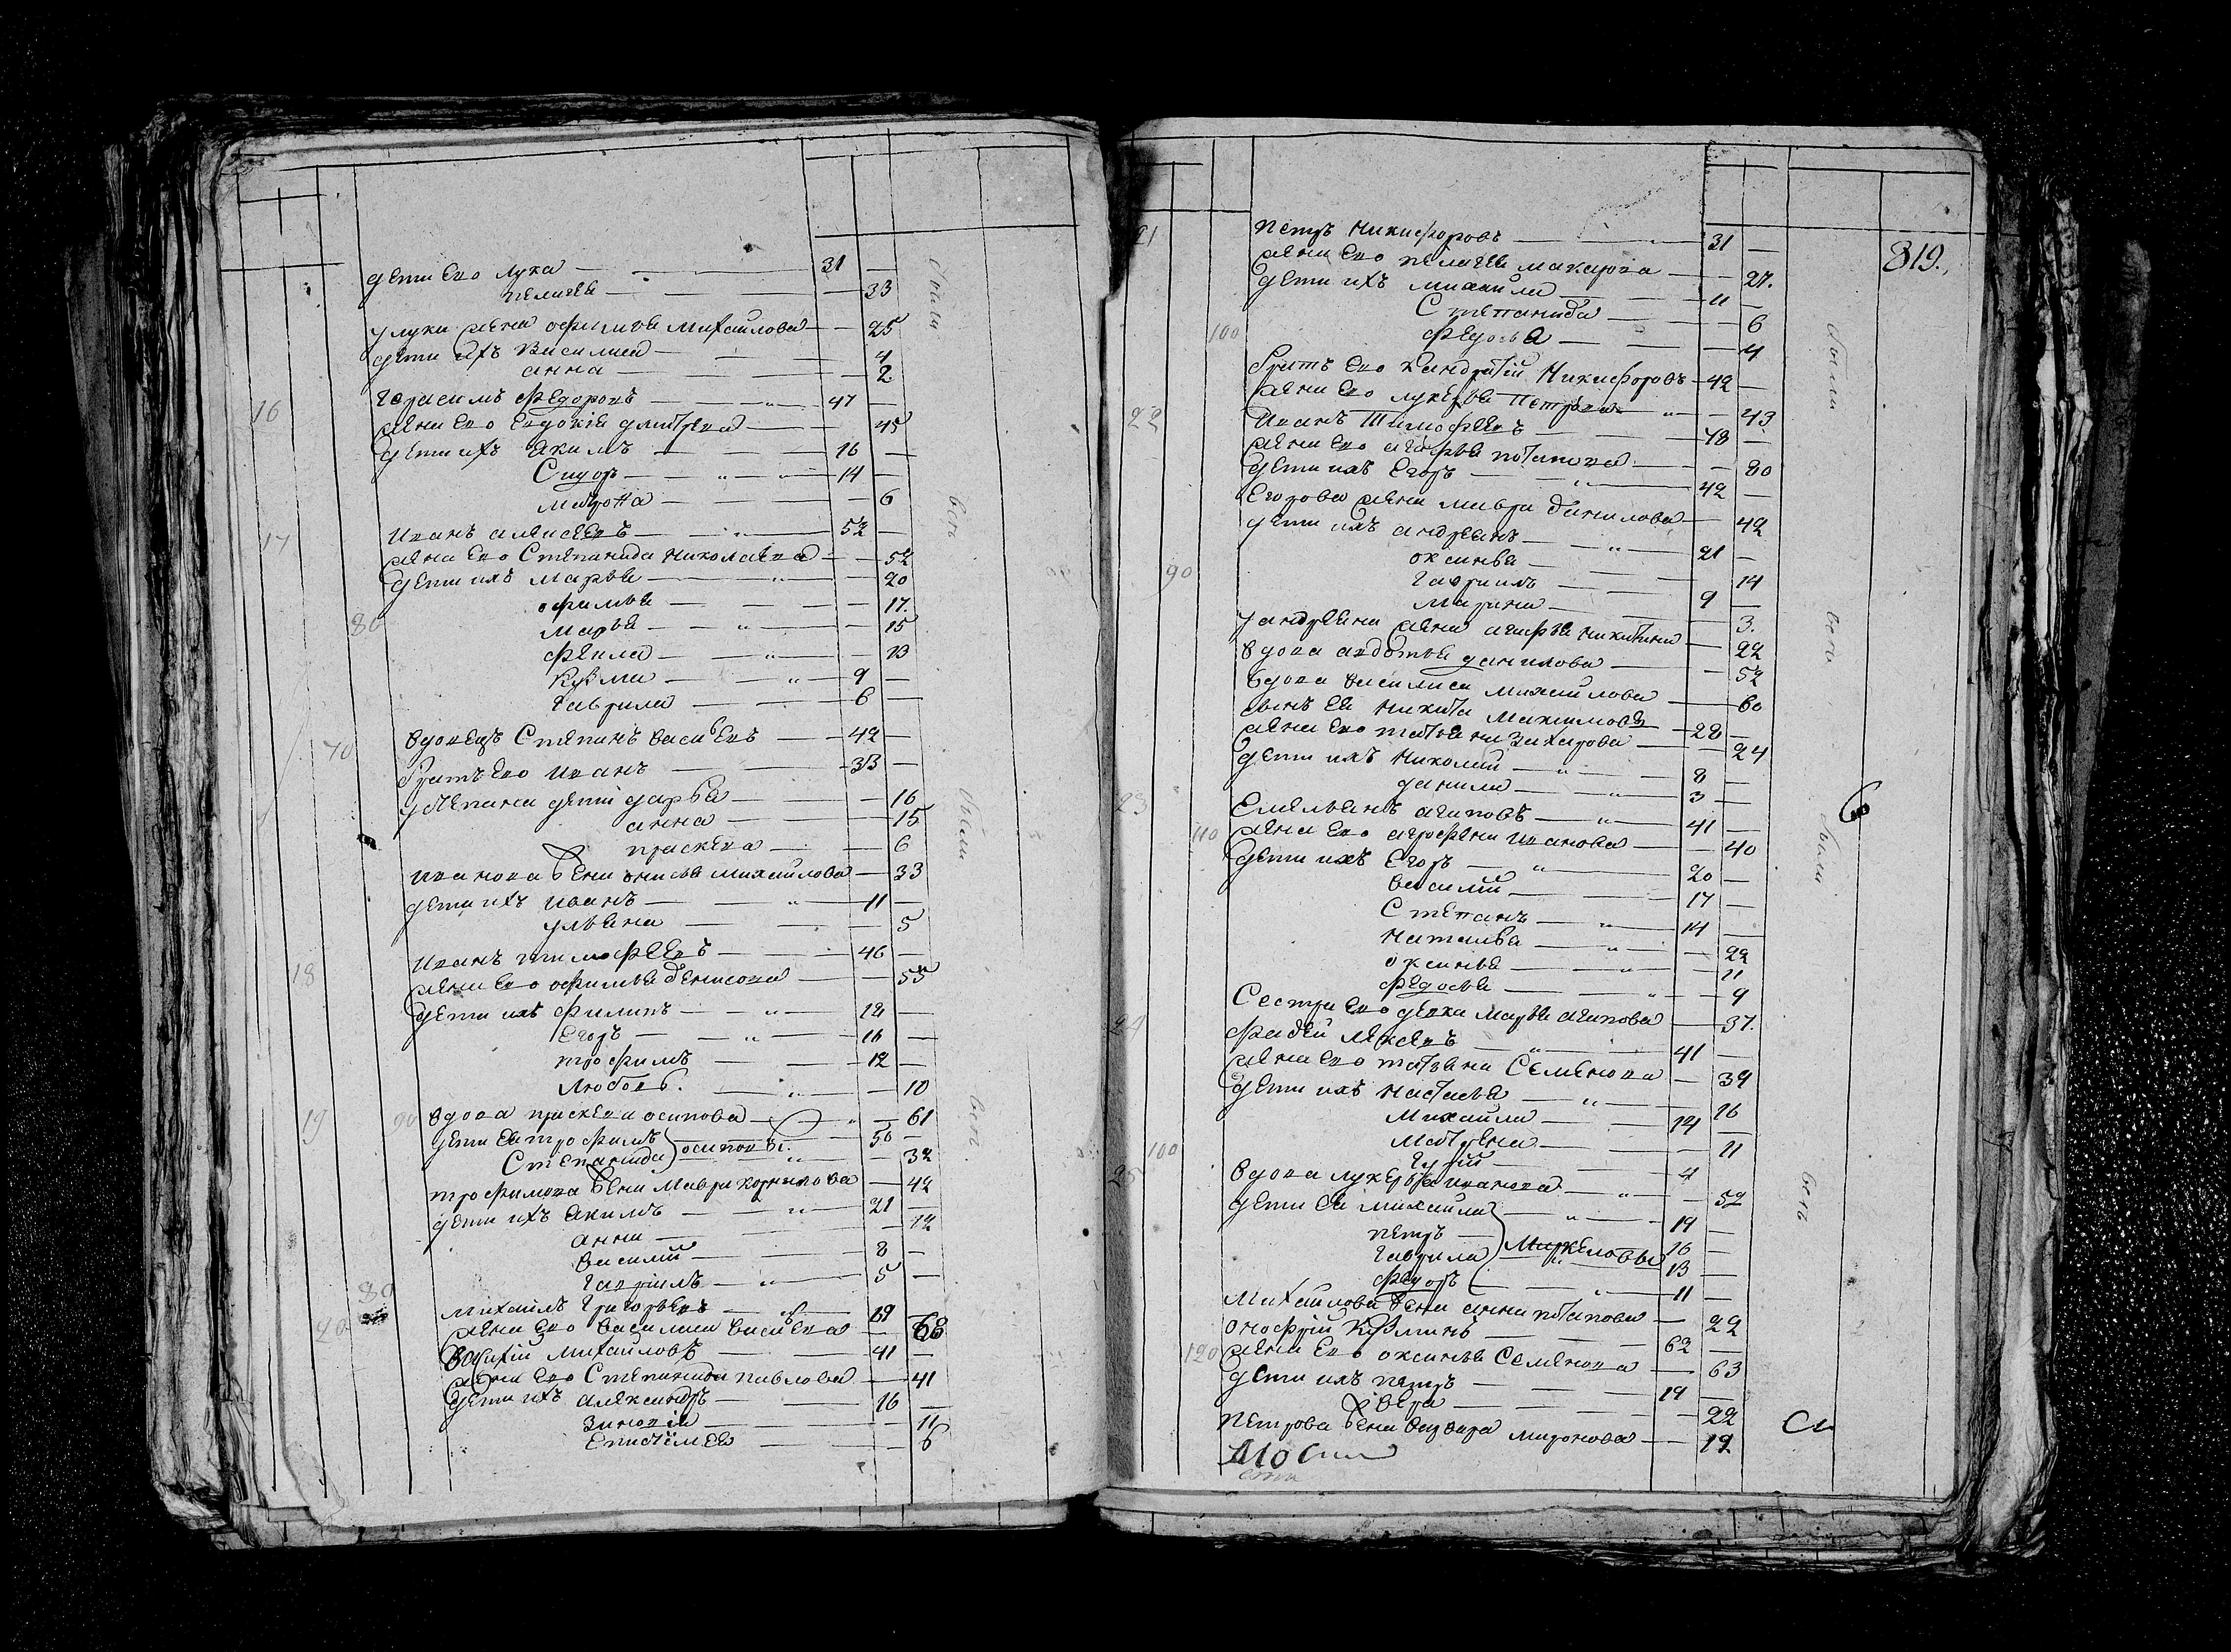 дети Его лука — 31 —
пелагея — 33
у луки жена офимья михайлова — 25
дети ихъ василиса — 4
анна — 2
16 Герасимъ Федоровъ — 47 —
жена Его Евдокія дмитрева — 45
дети ихъ Екимъ — 16 —
Сидоръ — 14 —
матрона — 6
17 иванъ алексеевъ — 52 —
жена Его Степанида николаева — 52
дети ихъ марья — 20
офимья — 17.
80 марья — 15
фекла — 13
Кузма — 9 —
гаврила — 6 —
70 вдовецъ Степанъ васильевъ — 42 —
братъ Его иванъ — 33 —
у степана дети дарья — 16
анна — 15
праскева — 6
иванова жена анисья михайлова — 33
дети ихъ иванъ — 11 —
ульяна — 5
18 иванъ тимофеевъ — 46 —
жена Его офимья денисова — 55
дети ихъ филипъ — 18 —
Егоръ — 16 —
трофимъ — 12 —
любовь. — 10
19 90 вдова праскева осипова — 61
дети Ея трофимъ осиповы — 50 —
Степанида — 32
трофимова жена мавра корнилова — 42
дети ихъ Екимъ — 21 —
анна — 12
василій — 8 —
80 гавріилъ — 5 —
михаилъ григорьевъ — 69 —
40 жена Его василиса васильева — 68
михайловъ — 41 —
жена Его Степанида павлова — 41
дети ихъ александръ — 16 —
зиновія — 11
Епистимея — 6
были
всѣ
были
всѣ
819.
21 петръ никифоровъ — 31 —
жена Его пелагея макарова — 27.
дети ихъ михайла — 11 —
Степанида — 6
100 федосья — 4
братъ Его кандратій Никифоровъ — 42 —
жена Его лукерья петрова — 43
22 Иванъ Тимофеевъ — 78 —
жена Его агафья потапова — 80
дети ихъ Егоръ — 42 —
Егорова жена мавра данилова — 42
дети ихъ андреянъ — 21 —
оксинья — 14
90 гавриилъ — 9 —
марина — 3.
у андреяна жена агафья никитина — 22
вдова авдотья данилова — 52
вдова василиса михайлова — 60
сынъ Ея никита максимовъ — 28 —
жена Его татьяна захарова — 24
дети ихъ николай — 8 —
данила — 3 —
23 Емельянъ агаповъ — 41 —
110 жена Его агрофена иванова — 40
дети ихъ Егоръ — 20 —
василій — 17 —
Степанъ — 14 —
наталья — 22
оксинья — 11
федосья — 9
Сестра Его девка марья агапова — 37.
24 фадей — 41 —
жена Его татьяна Семенова — 39
дети ихъ настасья — 16
михайла — 14 —
матрена — 11
100 гурій — 4 —
25 вдова лукерья иванова — 52
дети Ея михайла — 19 —
петръ — 16 —
гаврила маркеловы — 13 —
федоръ — 11 —
михайлова жена анна потапова — 22
онофрій Кузминъ — 62 —
120 жена Его оксинья Семенова — 63
дети ихъ петръ — 19 —
вера — 22
петрова жена варвара миронова — 19
были
всѣ
были
всѣ